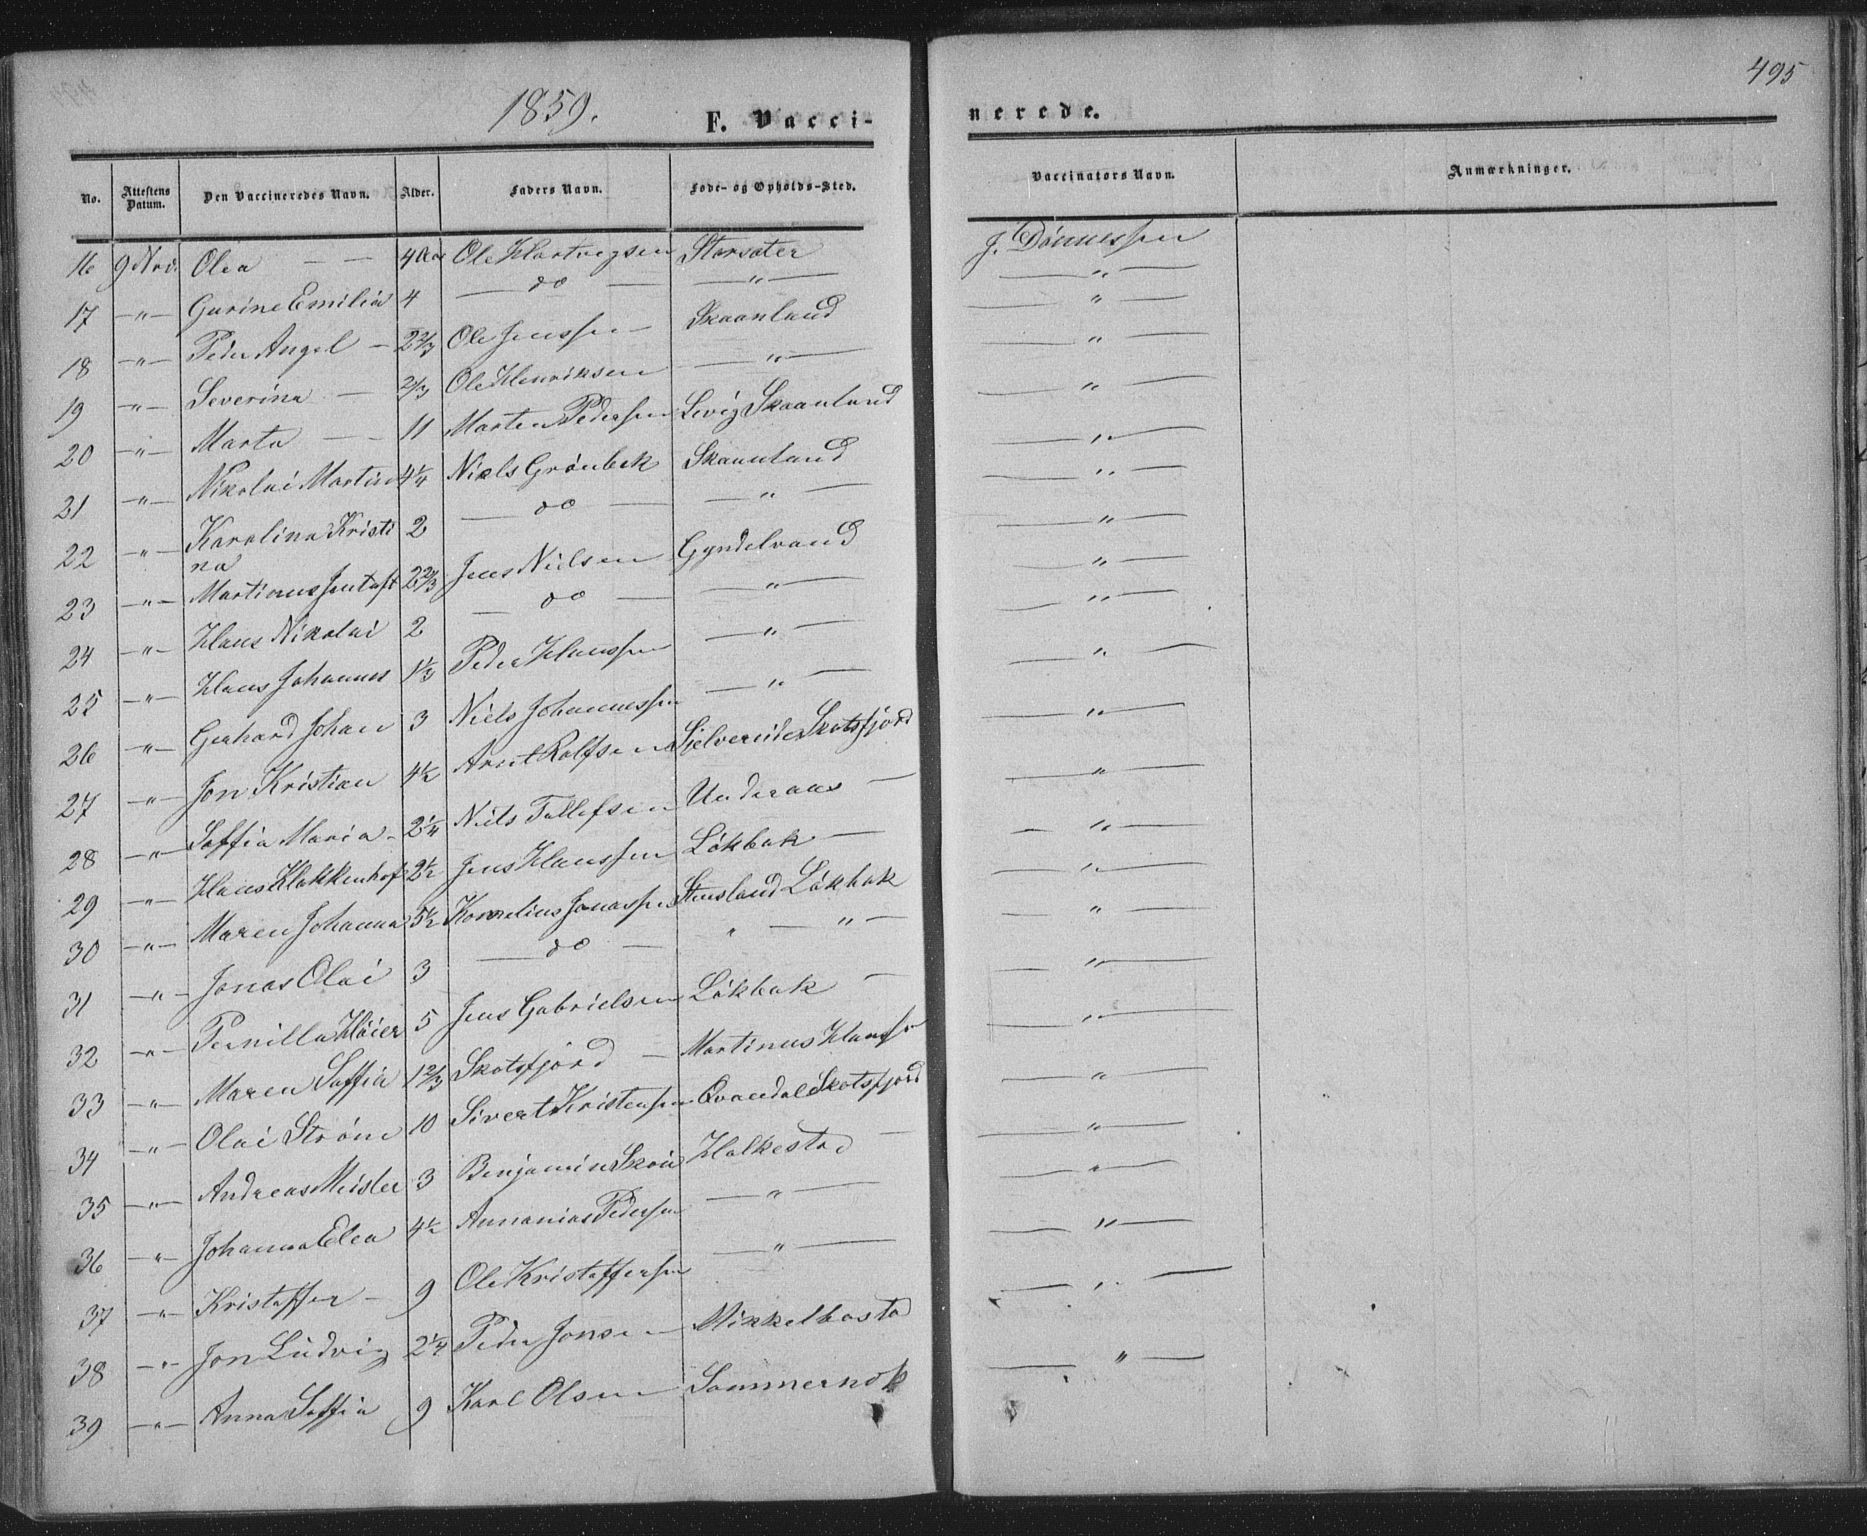 495
1859.
F. Vacci-
nerede.
No. Attestens Datum. Den Vaccineredes Navn. Alder. Faders Navn. Føde- og Opholds-Sted. Vaccinators Navn. Anmærkninger.
16 9 Nov. Olea — — 4 Aar Ole Hartvigsen Storsøter J. Dønnessen
17 —"— Gurine Emilia 4 — do — —"— —"—
18 —"— Peder Angel — 2 2/3 Ole Jenssen — Skaanland —"—
19 —"— Severina — 2/3 Ole Henriksen —"— —"—
20 —"— Marta — — 11 Morten Pedersen Levig Skaanland —"—
21 —"— Nikolai Martin 4 1/4 Niels Grönbek Skaanland —"—
22 —"— Karolina Kristi 2 — do — —"— —"—
na
23 —"— Martinus Jentoft 2 2/3 Jens Nielsen Gyndelvand —"—
24 —"— Hans Nikolai 2 — do — —"— —"—
25 —"— Hans Johannes 1 1/3 Peder Hanssen —"— —"—
26 —"— Gerhard Johan 3 Niels Johannessen —"— —"—
27 —"— Jon Kristian 4 1/2 Arnt Rolfsen Sjelvereide Skotsfjord —"—
28 —"— Soffia Maria — 2 1/4 Niels Tollefsen Underaas — —"—
29 —"— Hans Klokkenhof 2 1/2 Jens Hanssen Løkbak — —"—
30 —"— Maren Johanna 5 1/2 Kornelius Jonassen Stensland Løkbak —"—
31 —"— Jonas Olai 3 — do — " — " — —"—
32 —"— Pernilla Høier 5 Jens Gabrielsen Løkbak — —"—
33 —"— Maren Soffia 1 2/3 Skotsfjord — Martinus Hanssen —"—
34 —"— Olai Strøm 10 Sivert Kristensen Qvandal Skotsfjord —"—
35 —"— Andreas Meisler 3 Benjamin Skou Halkestad — —"—
36 —"— Johanna Elea 4 1/2 Annanias Pedersen —"— —"—
37 —"— Kristoffer — 9 Ole Kristoffersen —"— —"—
38 —"— Jon Ludvig 2 1/4 Peder Jonsen Mikkelbostad —"—
39 —"— Anna Soffia 9 Karl Olsen Sommernok —"—